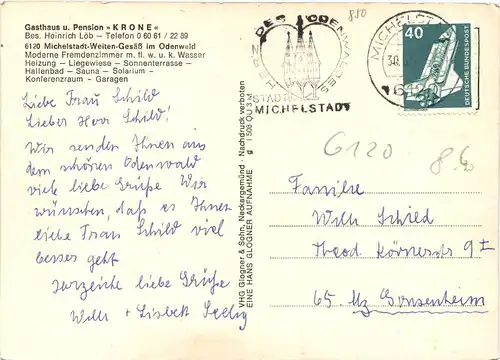 Gasthaus u. Pension »KRONE«
Bes. Heinrich Löb — Telefon 0 60 61 / 22 89
6120 Michelstadt-Weiten-Gesäß im Odenwald
Moderne Fremdenzimmer m. fl. w. u. k. Wasser
Heizung — Liegewiese — Sonnenterrasse —
Hallenbad — Sauna — Solarium —
Konferenzraum — Garagen
Liebe Frau Schild
Lieber Herr Schild!
Wir senden Ihnen aus
dem schönen Odenwald
viele liebe Grüße Wir
wünschen, daß es Ihnen
liebe Frau Schild viel
besser geht
herzliche liebe Grüße
Willi + Lisbeth Seelig
VHG Glogner & Sohn, Neckargemünd · Nachdruck verboten
EINE HANS GLOGNER AUFNAHME
HERZ DES ODENWALDES
STADT
MICHELSTADT
MICHELSTADT
6120
40
DEUTSCHE BUNDESPOST
850
6120
Familie
Willi Schild
Theod. Körnerstr 9 I
65. Mz Gonsenheim